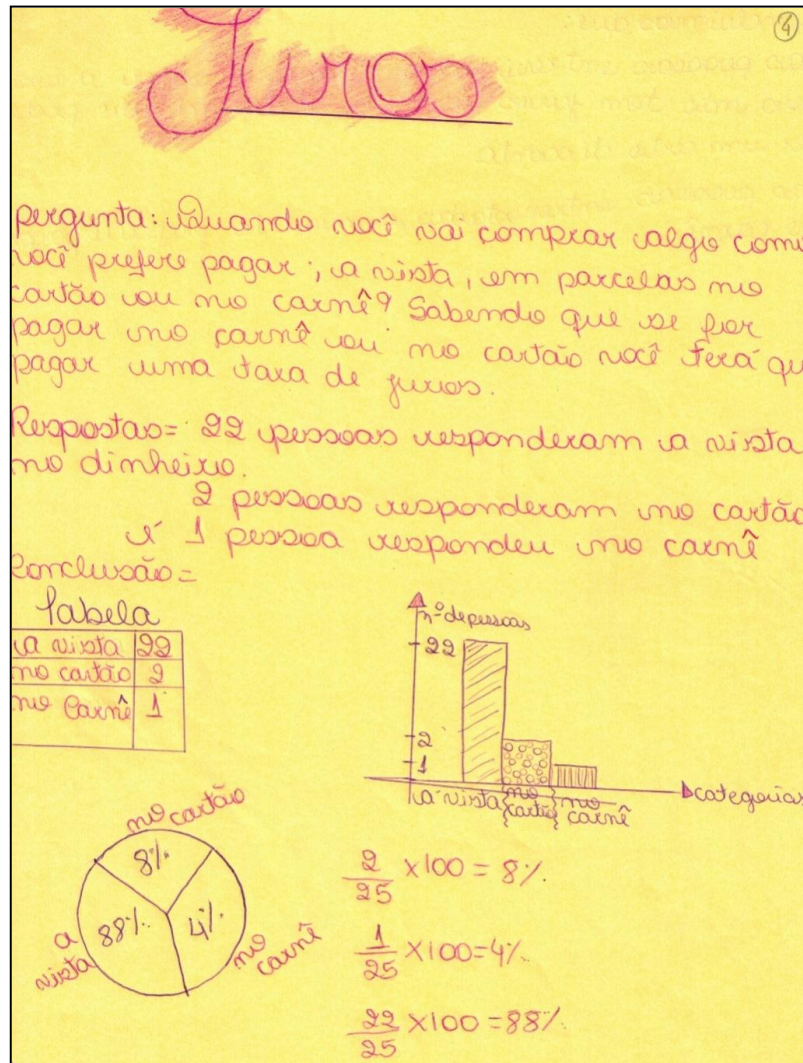 4
Juros
pergunta: Quando você vai comprar algo como
você prefere pagar; a vista, em parcelas no
cartão ou no carnê? Sabendo que se for
pagar no carnê ou no cartão você terá qu
pagar uma taxa de juros.
Respostas= 22 pessoas responderam a vista
no dinheiro.
2 pessoas responderam no cartão
e 1 pessoa respondeu no carnê
Conclusão=
Tabela
a vista 22
no cartão 2
no Carnê 1
nº de pessoas
22
2
1
a vista no cartão no carnê
categorias
no cartão
8%
88%
4%
a vista
no carnê
2/25 x100 = 8%.
1/25 x100=4%.
22/25 x100 =88%.